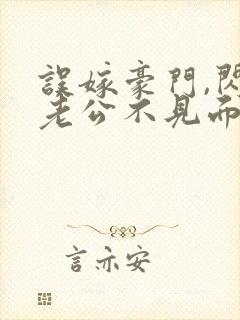 誤嫁豪門,閃
老公不見而
言亦安